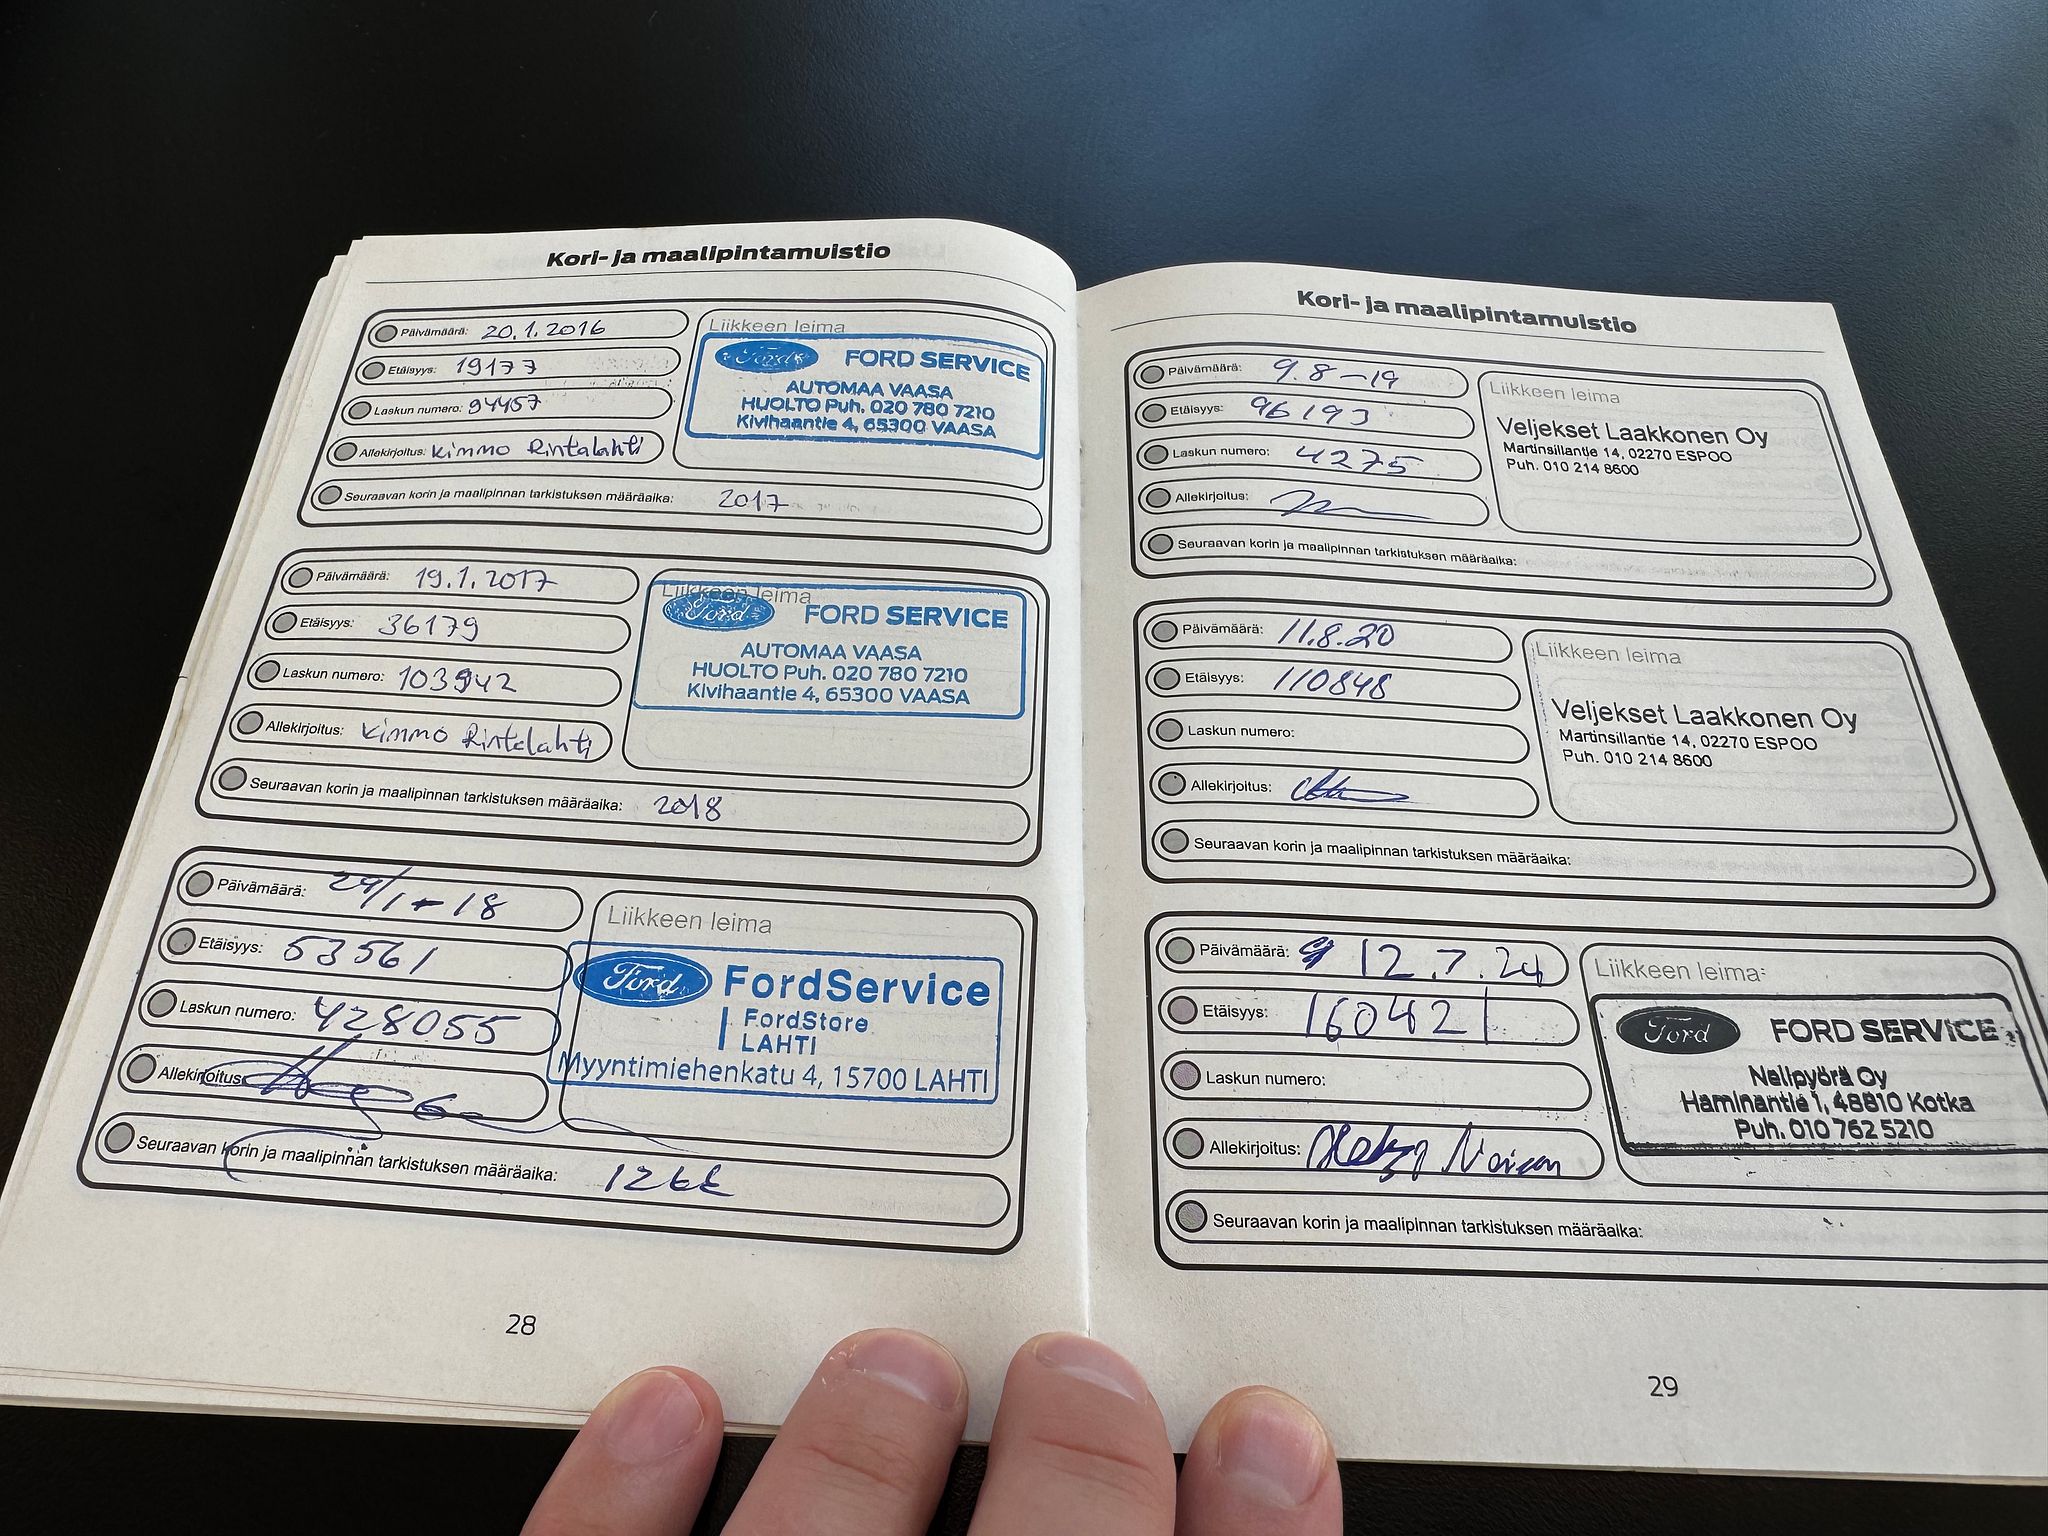 Kori- ja maalipintamuistio
Päivämäärä: 20.1.2016
Etäisyys: 19177
Laskun numero: 94457
Allekirjoitus: Kimmo Rintalahti
Seuraavan korin ja maalipinnan tarkistuksen määräaika: 2017
Liikkeen leima
Ford FORD SERVICE
AUTOMAA VAASA
HUOLTO Puh. 020 780 7210
Kivihaantie 4, 65300 VAASA
Päivämäärä: 19.1.2017
Etäisyys: 36179
Laskun numero: 103942
Allekirjoitus: Kimmo Rintalahti
Seuraavan korin ja maalipinnan tarkistuksen määräaika: 2018
Liikkeen leima
Ford FORD SERVICE
AUTOMAA VAASA
HUOLTO Puh. 020 780 7210
Kivihaantie 4, 65300 VAASA
Päivämäärä: 29/1-18
Etäisyys: 53561
Laskun numero: 428055
Allekirjoitus:
Seuraavan korin ja maalipinnan tarkistuksen määräaika: 12kk
Liikkeen leima
Ford FordService
FordStore
LAHTI
Myyntimiehenkatu 4, 15700 LAHTI
28
Kori- ja maalipintamuistio
Päivämäärä: 9.8-19
Etäisyys: 96193
Laskun numero: 4275
Allekirjoitus:
Seuraavan korin ja maalipinnan tarkistuksen määräaika:
Liikkeen leima
Veljekset Laakkonen Oy
Martinsillantie 14, 02270 ESPOO
Puh. 010 214 8600
Päivämäärä: 11.8.20
Etäisyys: 110848
Laskun numero:
Allekirjoitus:
Seuraavan korin ja maalipinnan tarkistuksen määräaika:
Liikkeen leima
Veljekset Laakkonen Oy
Martinsillantie 14, 02270 ESPOO
Puh. 010 214 8600
Päivämäärä: 12.7.24
Etäisyys: 160421
Laskun numero:
Allekirjoitus:
Seuraavan korin ja maalipinnan tarkistuksen määräaika:
Liikkeen leima
Ford FORD SERVICE
Nelipyörä Oy
Haminantie 1, 48810 Kotka
Puh. 010 762 5210
29